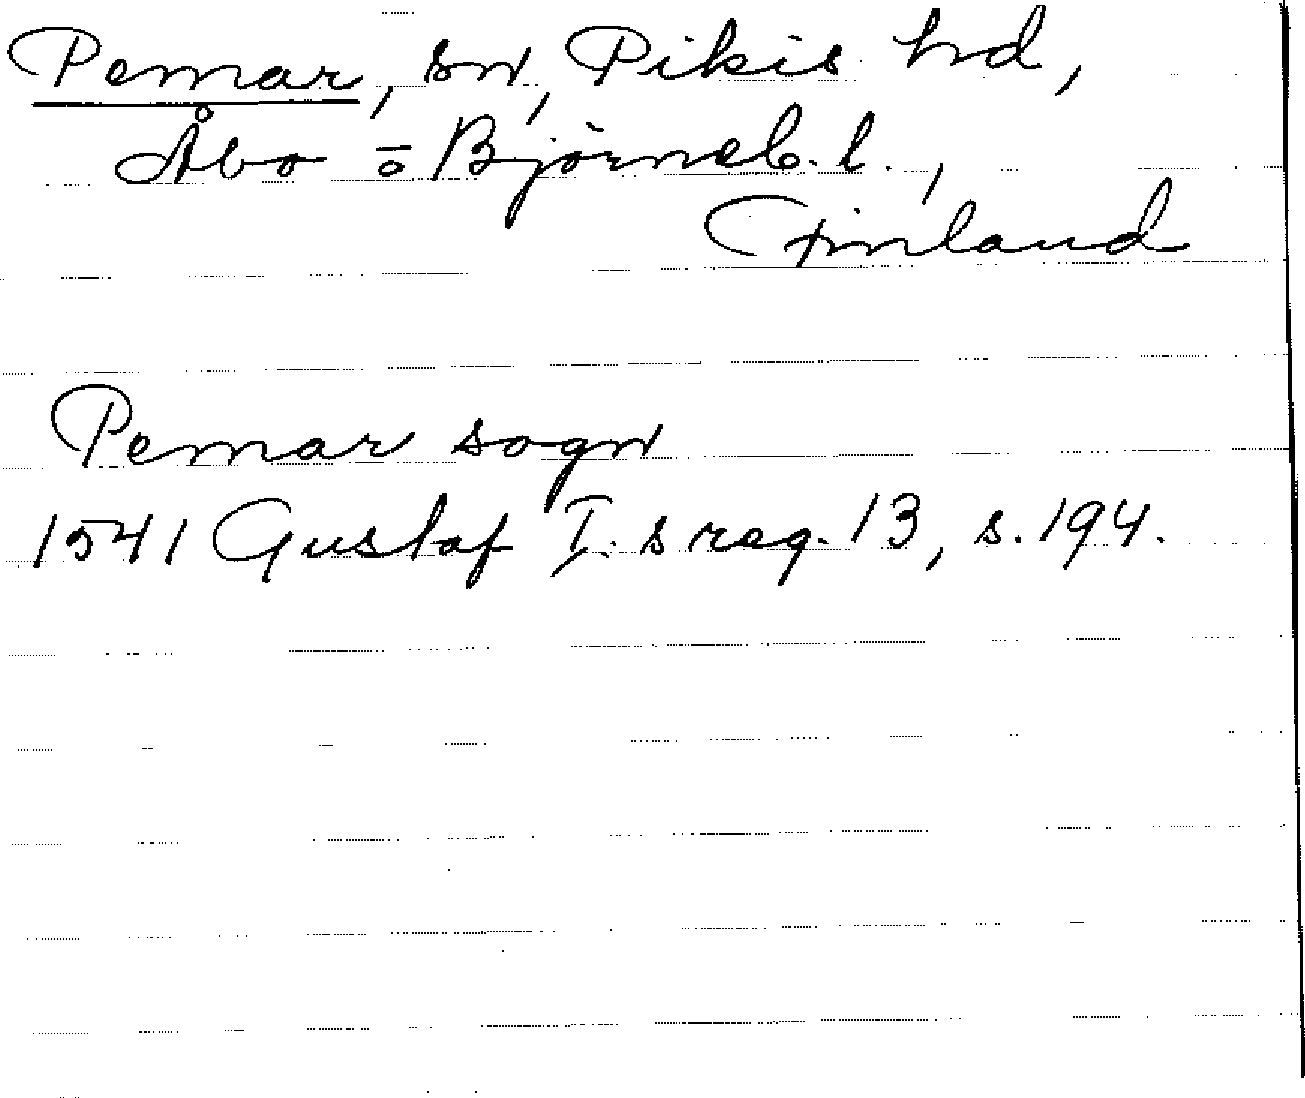 Pemar, sn, Pikis hd,
Åbo o Björneb. l.,
Finland
Pemar sogn
1541 Gustaf I:s reg. 13, s. 194.